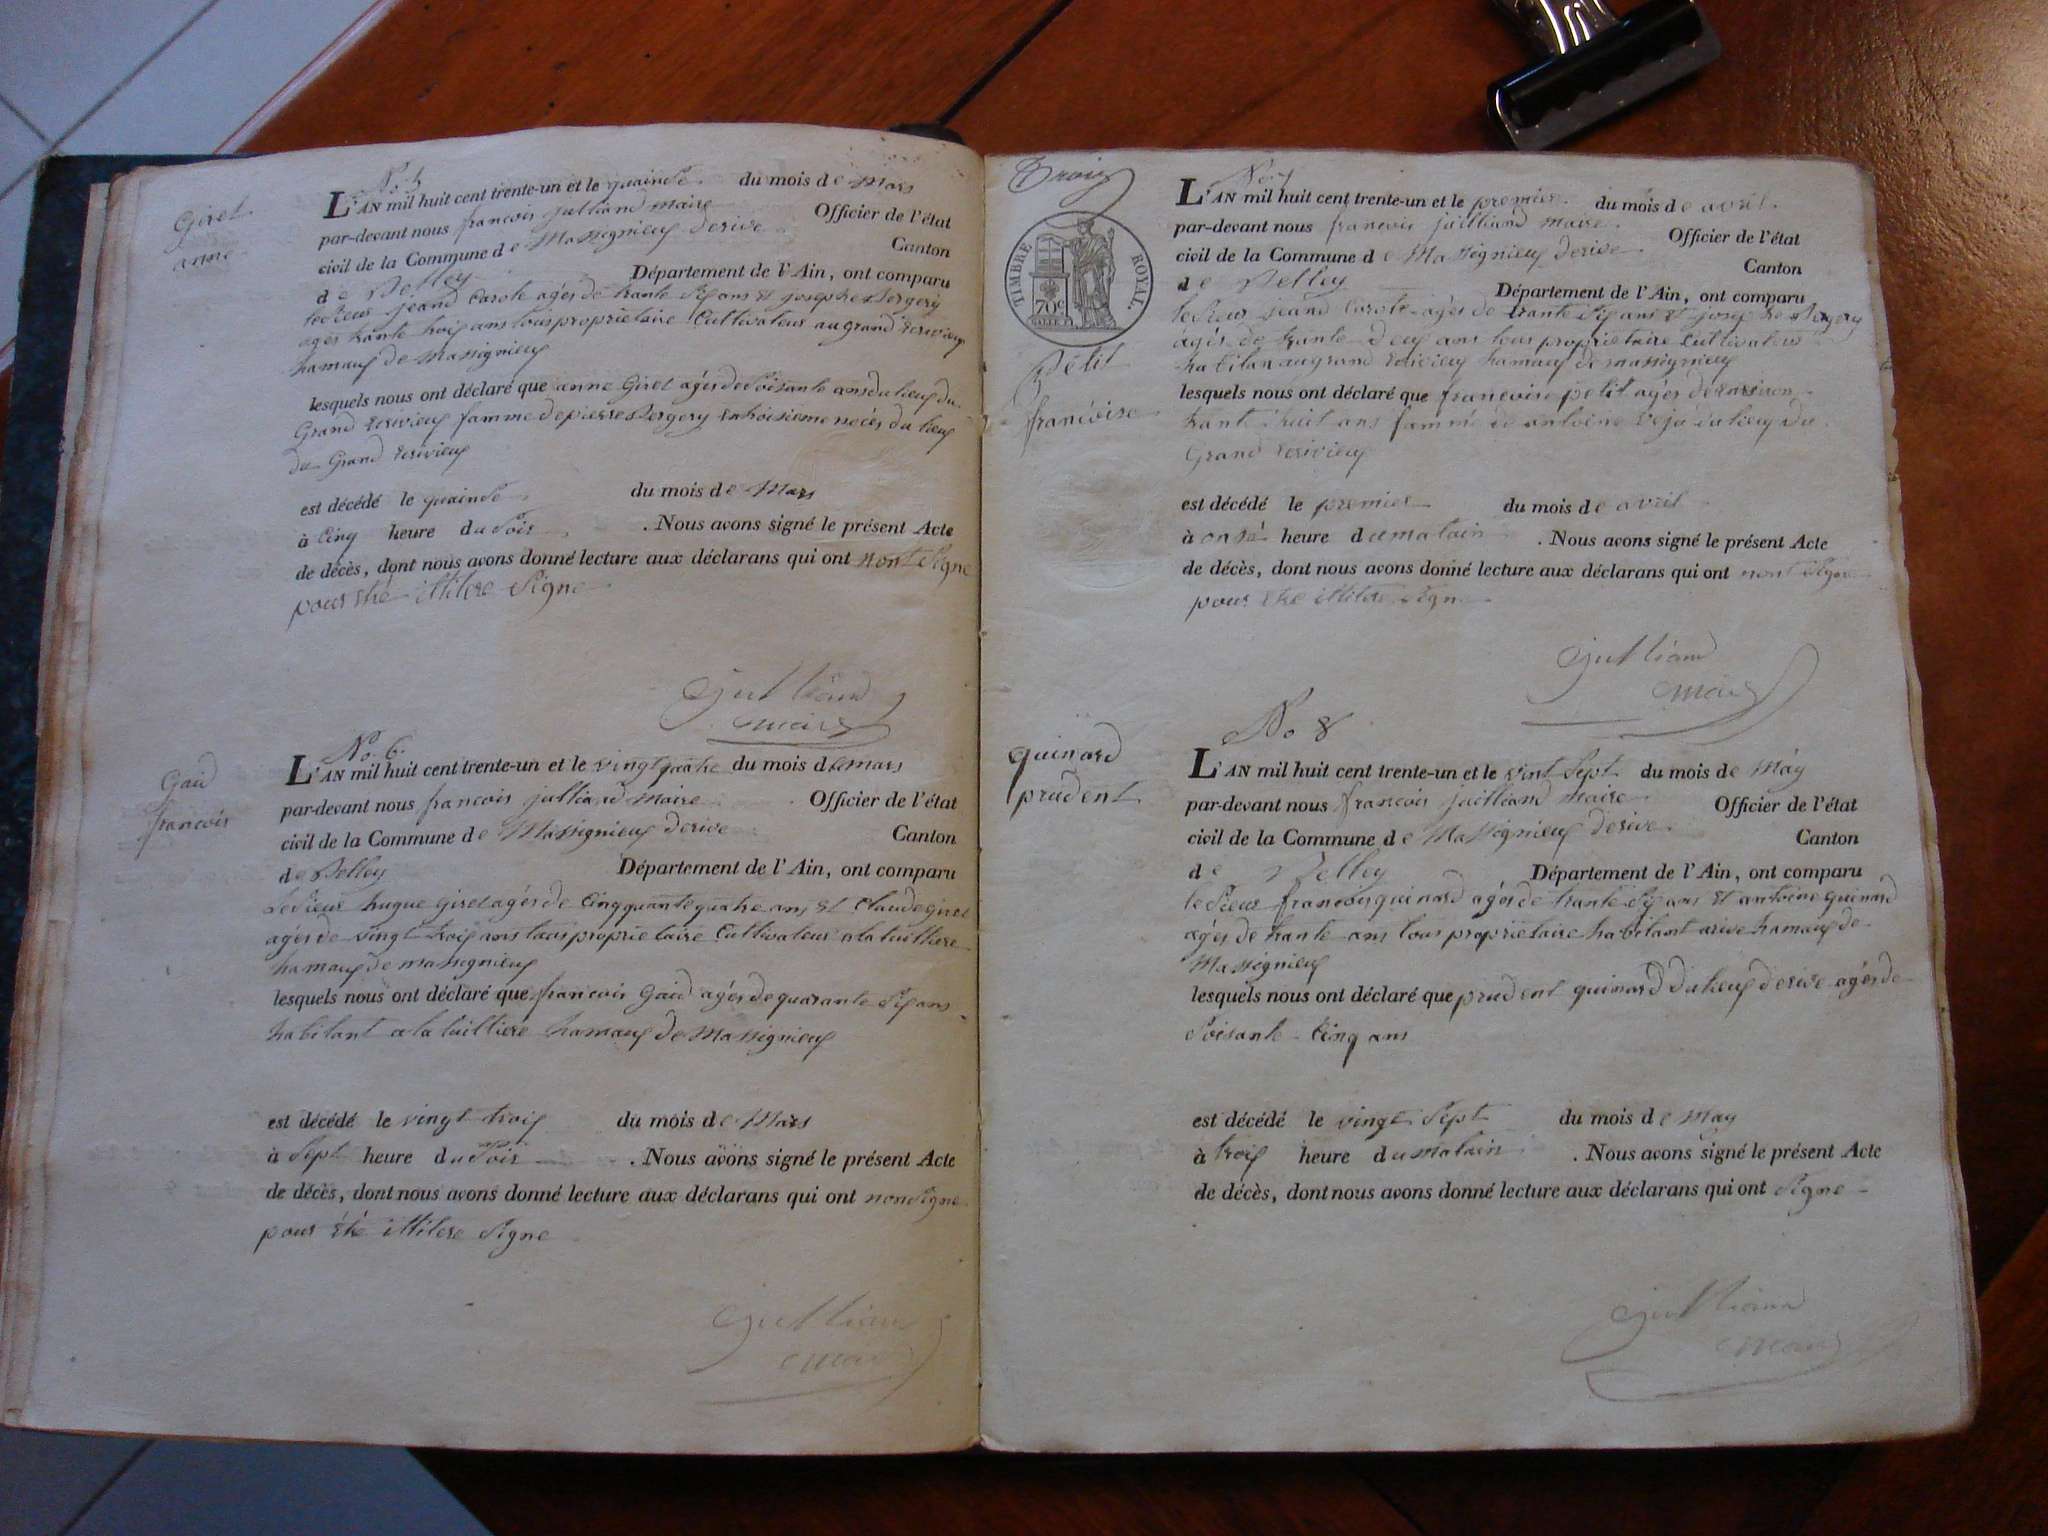 Giret
anne
No. 5
L'AN mil huit cent trente-un et le quainse du mois de Mars
par-devant nous francois julliand maire Officier de l'état
civil de la Commune de Massignieux derive Canton
de Belley Département de l'Ain, ont comparu
le Sieur jeand Carote agés de trante Six ans et josephe Bergery
agés trante trois ans tous proprietaire Cultivateur au grand
hamaux de Massignieux
lesquels nous ont déclaré que anne Giret agés de Soisante ans du lieux du
Grand femme de pierre Bergery entroisieme noces du lieux
du Grand
est décédé le quainse du mois de Mars
à Cinq heure du Soir . Nous avons signé le présent Acte
de décès, dont nous avons donné lecture aux déclarans qui ont nont Signe
pour etre illitere Signe
julliand
maire
Gaud
francois
No. 6.
L'AN mil huit cent trente-un et le vingt quatre du mois de mars
par-devant nous francois julliand maire Officier de l'état
civil de la Commune de Massignieux derive Canton
de Belley Département de l'Ain, ont comparu
Le Sieur hugue Giret agés de Cinqquante quatre ans et Claude Giret
agés de vingt trois ans tous proprietaire Cultivateur a la tuilliere
hamaux de massignieux
lesquels nous ont déclaré que francois Gaud agés de quarante Six ans
habitant a la tuilliere hamaux de Massignieux
est décédé le vingt trois du mois de Mars
à Sept heure du Soir . Nous avons signé le présent Acte
de décès, dont nous avons donné lecture aux déclarans qui ont non Signe
pour etre illitere Signe
julliand
maire
Trois
TIMBRE ROYAL.
70c
Petit
francoise
No. 7
L'AN mil huit cent trente-un et le premier du mois de avril
par-devant nous francois juilliand maire Officier de l'état
civil de la Commune de Massignieux derive Canton
de Belley Département de l'Ain, ont comparu
le Sieur jeand Carote agés de trante Six ans et josephe Bergery
agés de trante deux ans tous proprietaire Cultivateur
habitan au grand hamaux de massignieux
lesquels nous ont déclaré que francoise petit agés de environ
trante huit ans famme de antoine du lieux du
Grand
est décédé le premier du mois de avril
à onse heure du matain . Nous avons signé le présent Acte
de décès, dont nous avons donné lecture aux déclarans qui ont nont Signe
pour etre illitere Signe
julliand
maire
quinard
prudent
No 8
L'AN mil huit cent trente-un et le vint Sept du mois de May
par-devant nous francois juilliand maire Officier de l'état
civil de la Commune de Massignieux derive Canton
de Belley Département de l'Ain, ont comparu
le Sieur francois quinard agés de trante Six ans et antoine quinard
agés de trante ans tous proprietaire habitant arive hamaux de
Massignieux
lesquels nous ont déclaré que prudent quinard du lieux derive agés de
Soisante Cinq ans
est décédé le vingt Sept du mois de May
à trois heure du matain . Nous avons signé le présent Acte
de décès, dont nous avons donné lecture aux déclarans qui ont Signe
julliand
maire